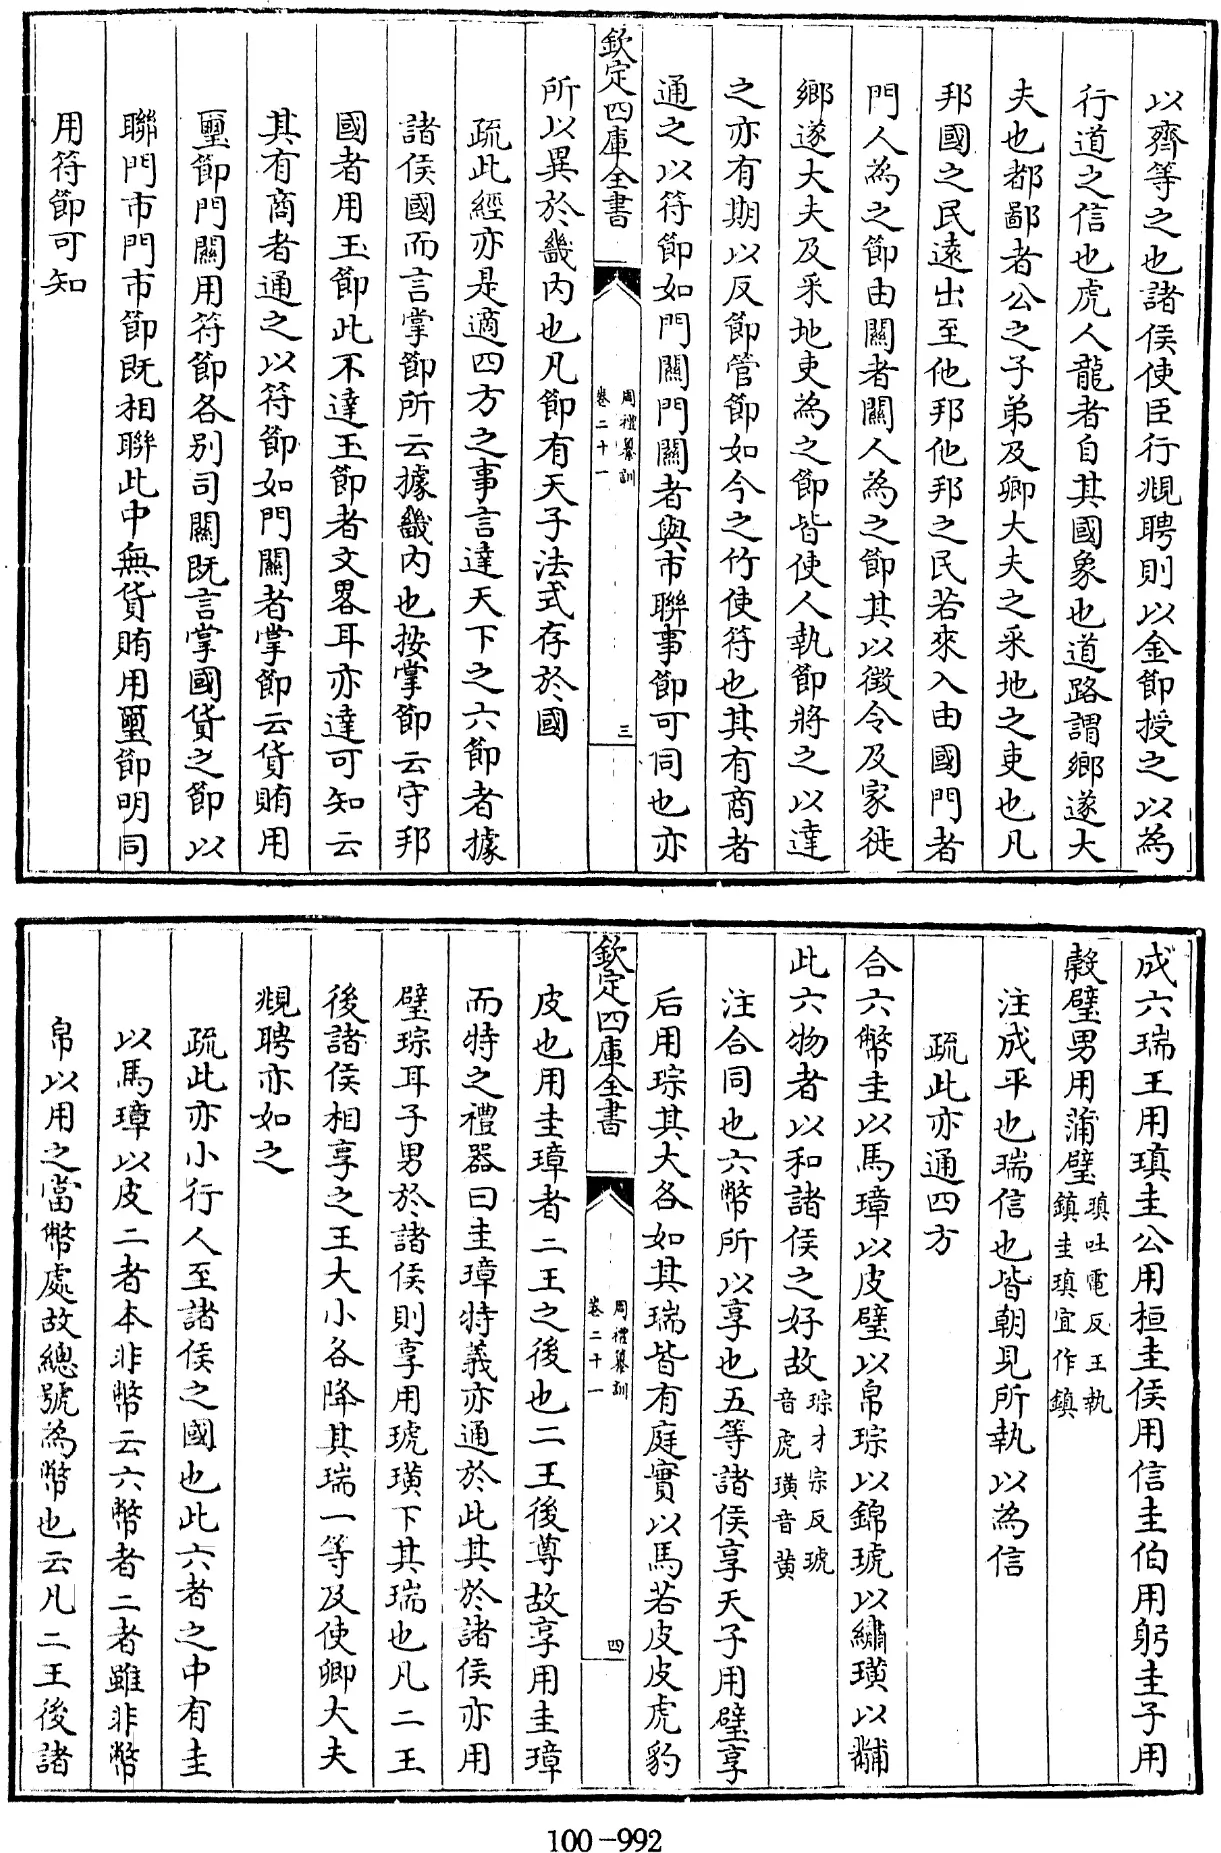 以齊等之也諸侯使臣行覜聘則以金節授之以為
行道之信也虎人龍者自其國象也道路謂鄉遂大
夫也都鄙者公之子弟及卿大夫之采地之吏也凡
邦國之民遠出至他邦他邦之民若來入由國門者
門人為之節由關者關人為之節其以徴令及家徙
鄉遂大夫及采地吏為之節皆使人執節將之以達
之亦有期以反節管節如今之竹使符也其有商者
通之以符節如門關門關者與市聯事節可同也亦
欽定四庫全書
周禮纂訓
卷二十一
三
所以異於畿内也凡節有天子法式存於國
疏此經亦是適四方之事言達天下之六節者據
諸侯國而言掌節所云據畿内也按掌節云守邦
國者用玉節此不達玉節者文畧耳亦達可知云
其有商者通之以符節如門關者掌節云貨賄用
璽節門關用符節各别司關既言掌國貨之節以
聯門市門市節既相聯此中無貨賄用璽節明同
用符節可知
成六瑞王用瑱圭公用桓圭侯用信圭伯用躬圭子用
榖璧男用蒲璧瑱吐電反王執鎮圭瑱宜作鎮
注成平也瑞信也皆朝見所執以為信
疏此亦通四方
合六幣圭以馬璋以皮璧以帛琮以錦琥以繡璜以黼
此六物者以和諸侯之好故琮才宗反琥音虎璜音黄
注合同也六幣所以享也五等諸侯享天子用璧享
后用琮其大各如其瑞皆有庭實以馬若皮皮虎豹
欽定四庫全書
周禮纂訓
卷二十一
四
皮也用圭璋者二王之後也二王後尊故享用圭璋
而特之禮器曰圭璋特義亦通於此其於諸侯亦用
璧琮耳子男於諸侯則享用琥璜下其瑞也凡二王
後諸侯相享之王大小各降其瑞一等及使卿大夫
覜聘亦如之
疏此亦小行人至諸侯之國也此六者之中有圭
以馬璋以皮二者本非幣云六幣者二者雖非幣
帛以用之當幣處故總號為幣也云凡二王後諸
100-992